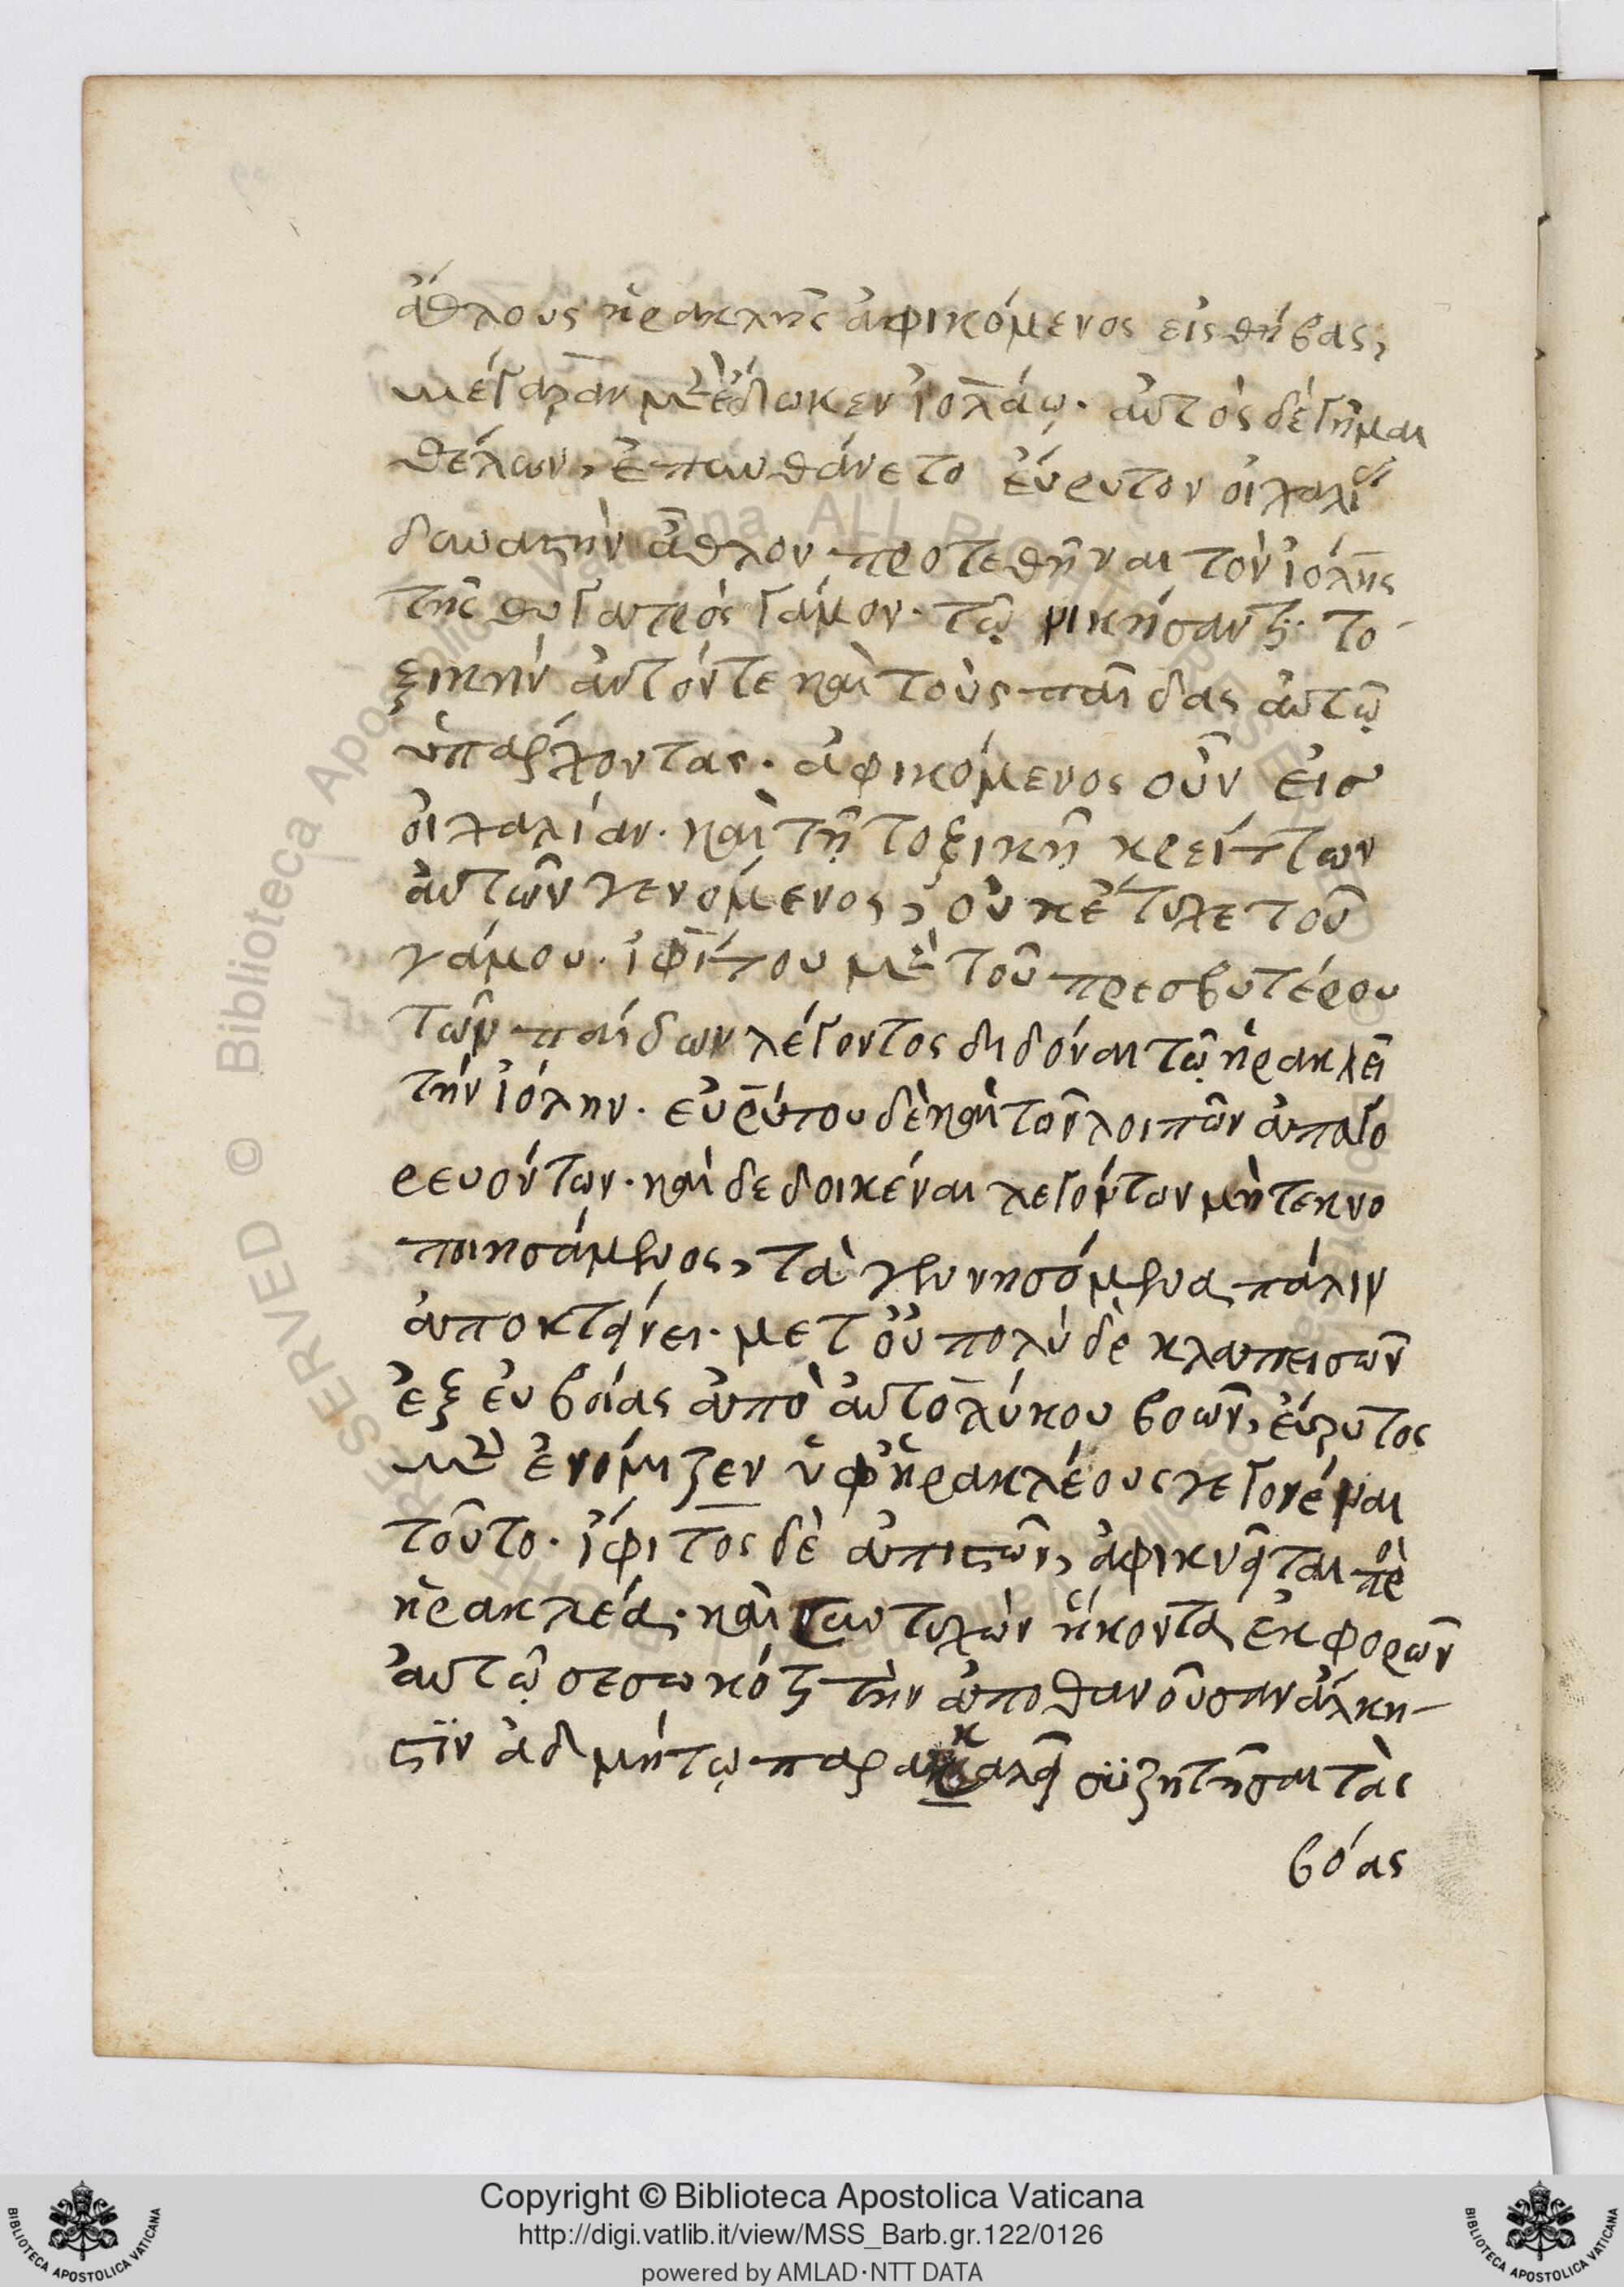 ἄθλους ἡρακλῆς ἀφικόμενος εἰς θήβας,
μέγαραν μὲν ἔδωκεν ἰολάῳ. αὐτὸς δὲ γῆμαι
θέλων, ἐπυνθάνετο εὔρυτον οἰχαλίας
δυναστὴν ἆθλον προτεθῆναι τὸν ἰόλης
τῆς θυγατρὸς γάμον. τῷ νικήσαντι. το
ξικὴν αὐτόν τε καὶ τοὺς παῖδας αὐτῷ
ὑπάρχοντας. ἀφικόμενος οὖν εἰσ
οἰχαλίαν. καὶ τῇ τοξικῇ κρείττων
αὐτῶν γενόμενος, οὐκ ἔτυχε τοῦ
γάμου. ἰφίτου μὲν τοῦ πρεσβυτέρου
τῶν παίδων λέγοντος διδόναι τῷ ἡρακλεῖ
τὴν ἰόλην. εὐρύτου δὲ καὶ τῶν λοιπῶν ἀπαγο
ρευόντων. καὶ δεδοικέναι λεγόντων μὴ τεκνο
ποιησάμενος, τὰ γεννησόμενα πάλιν
ἀποκτείνει. μετ οὐ πολὺ δὲ κλαπεισῶν
ἐξ εὐβοίας ἀπὸ αὐτολύκου βοῶν, εὔρυτος
μὲν ἐνόμιζεν ὑφ ἡρακλέους γεγονέναι
τοῦτο. ἴφιτος δὲ ἀπιστῶν, ἀφικνεῖται πρὸς
ἡρακλέα. καὶ συντυχὼν ἥκοντα ἐκ φορῶν
αὐτῷ σεσωκότι τὴν ἀποθανοῦσαν ἄλκη
στιν ἀδμήτῳ παρακαλεῖ συζητῆσαι τὰς
βόας
Copyright © Biblioteca Apostolica Vaticana
http://digi.vatlib.it/view/MSS_Barb.gr.122/0126
powered by AMLAD·NTT DATA